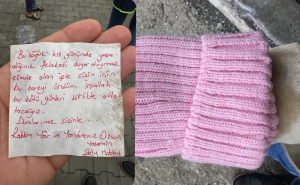 Bu soğuk kış gününde yaşa
dığınız felaketi duyar duymaz
elimde olan iple sizin için
bu bereyi ördüm inşallah
bu kötü günleri birlikte atla
tacağız.
Dualarımız sizinle...
Rabbim Yar ve Yardımcınız Olsun
Yasemin